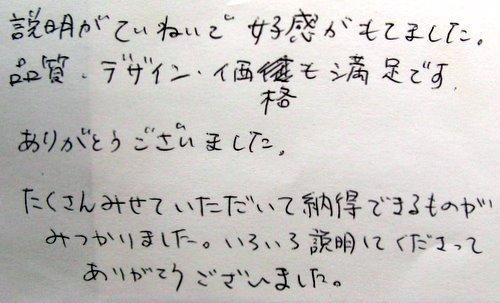 説明がていねいで 好感がもてました。
品質・デザイン・価格も満足です.
ありがとうございました。
たくさんみせていただいて納得できるものが
みつかりました。いろいろ説明してくださって
ありがとうございました。